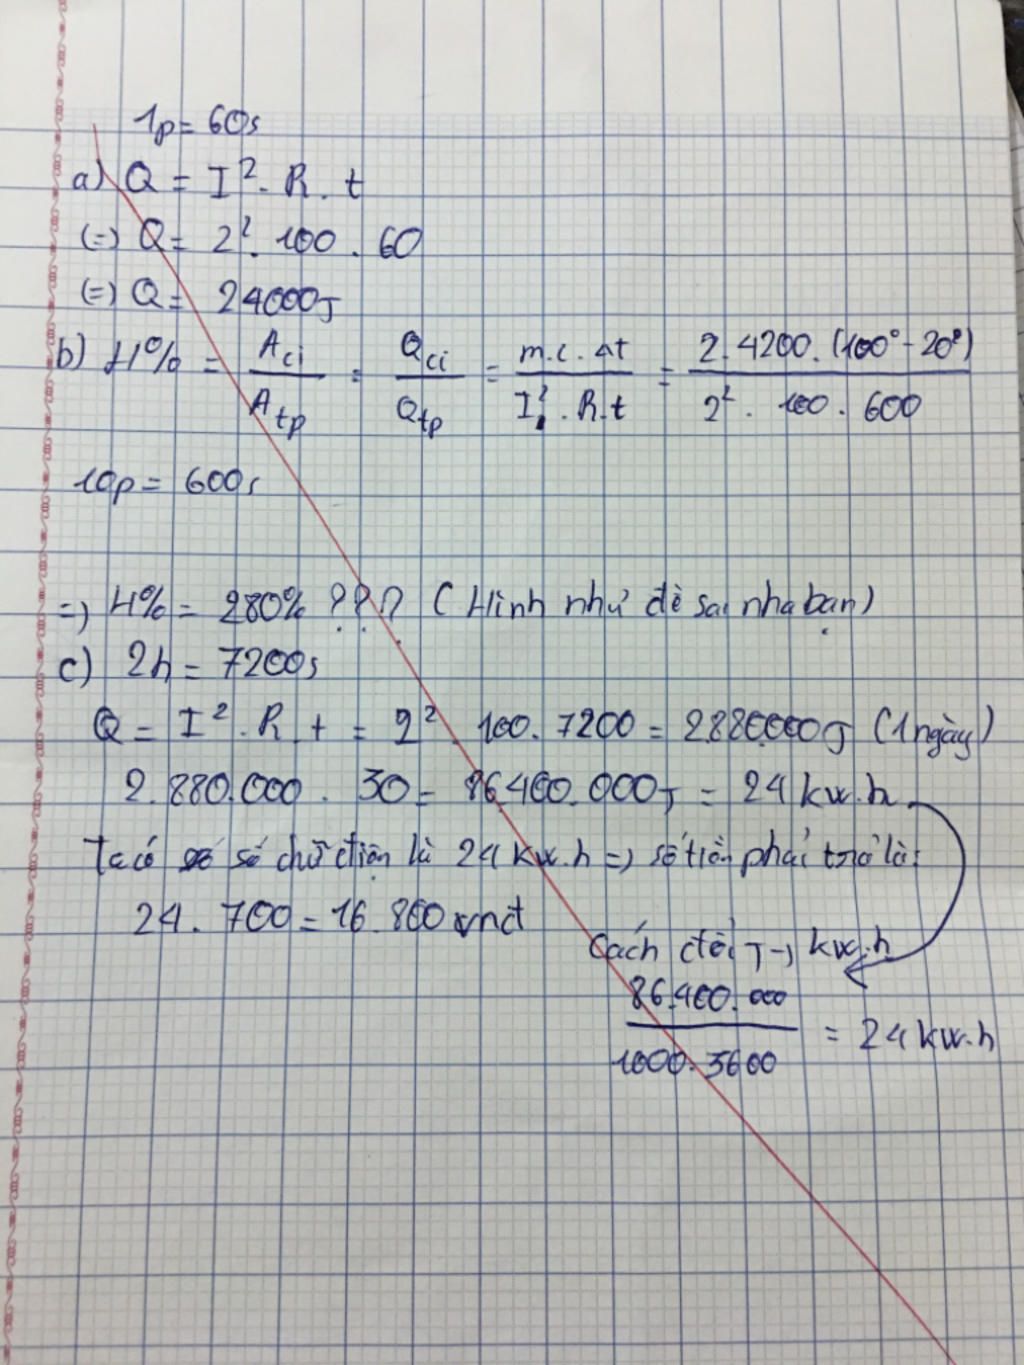 1p = 60s
a) Q = I². R. t
(=) Q = 2². 100 . 60
(=) Q = 24000J
b) H% = Aci / Atp = Qci / Qtp = m.c.Δt / I². R.t = 2.4200.(100° - 20°) / 2². 100. 600
10p = 600s
=) H% = 280% ??? (Hình như đề sai nha bạn)
c) 2h = 7200s
Q = I². R t = 2². 100. 7200 = 2.880.000J (1 ngày)
2.880.000 . 30 = 86.400.000J = 24 kw.h
Ta có số chữ điện là 24 kw.h =) số tiền phải trả là:
24. 700 = 16.800 vnđ
Cách đổi J → kw.h
86.400.000 / 1000.3600 = 24 kw.h